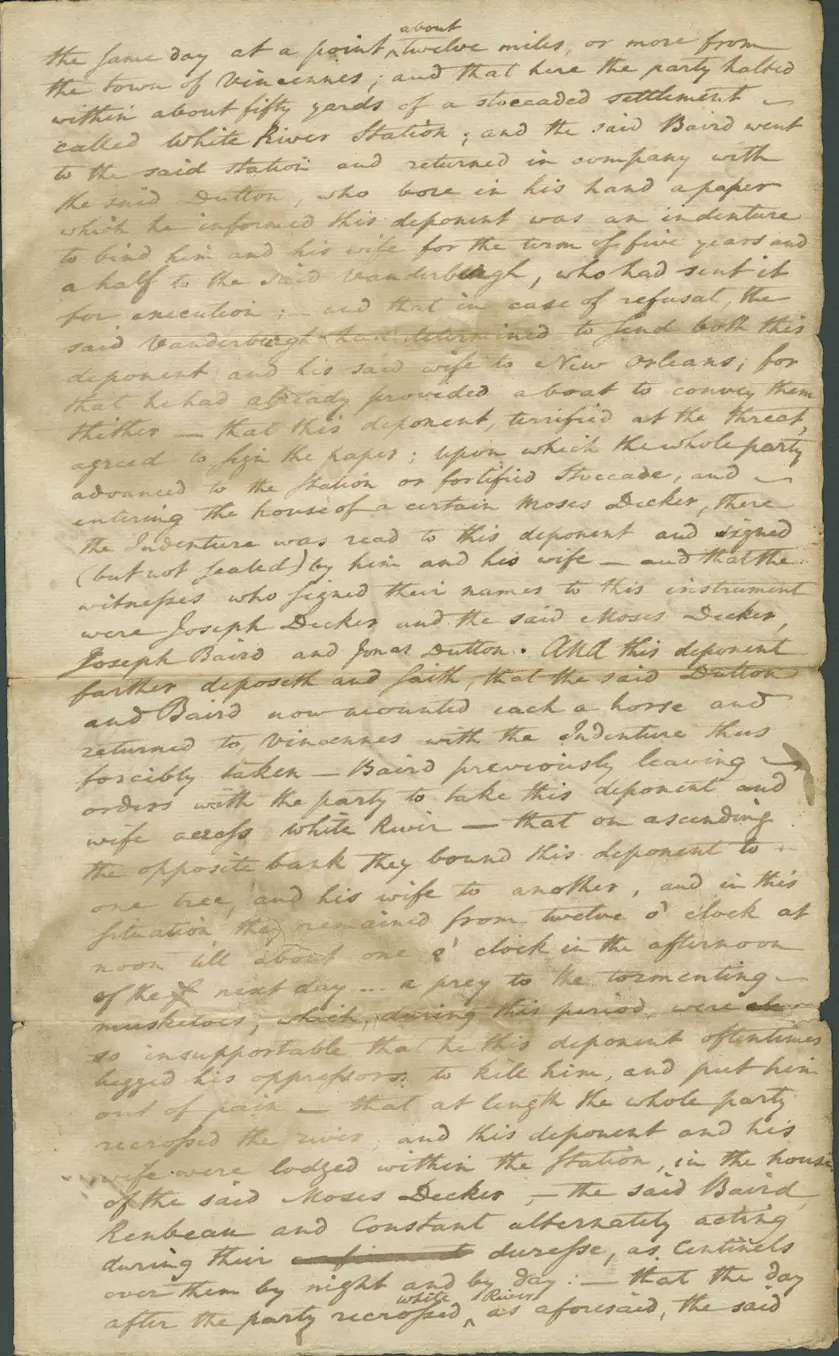 the same day at a point about twelve miles, or more from
the town of Vincennes; and that here the party halted
within about fifty yards of a stoccaded settlement
called White River Station; and the said Baird went
to the said station and returned in company with
the said Dutton, who bore in his hand a paper
which he informed this deponent was an indenture
to bind him and his wife for the term of five years and
a half to the said Vanderburgh, who had sent it
for execution; — and that in case of refusal, the
said Vanderburgh had determined to send both this
deponent and his said wife to New Orleans; for
that he had already provided a boat to convey them
thither — that this deponent, terrified at the threat,
agreed to sign the paper: upon which the whole party
advanced to the station or fortified stoccade, and
entering the house of a certain Moses Decker, there
the Indenture was read to this deponent and signed
(but not sealed) by him and his wife — and that the
witnesses who signed their names to this instrument
were Joseph Decker and the said Moses Decker,
Joseph Baird and Jonas Dutton. And this deponent
farther deposeth and saith, that the said Dutton
and Baird now mounted each a horse and
returned to Vincennes with the Indenture thus
forcibly taken — Baird previously leaving
orders with the party to take this deponent and
wife across White River — that on ascending
the opposite bank they bound this deponent to
one tree, and his wife to another, and in this
situation they remained from twelve o' clock at
noon till about one o' clock in the afternoon
of the next day ... a prey to the tormenting
musketoes, which, during this period, were
so insupportable that he this deponent oftentimes
begged his oppressors to kill him, and put him
out of pain — that at length the whole party
recrossed the river, and this deponent and his
wife were lodged within the Station, in the house
of the said Moses Decker, — the said Baird,
Renbeau and Constant alternately acting
during their duresse, as Centinels
over them by night and by day: — that the day
after the party recrossed White River as aforesaid, the said